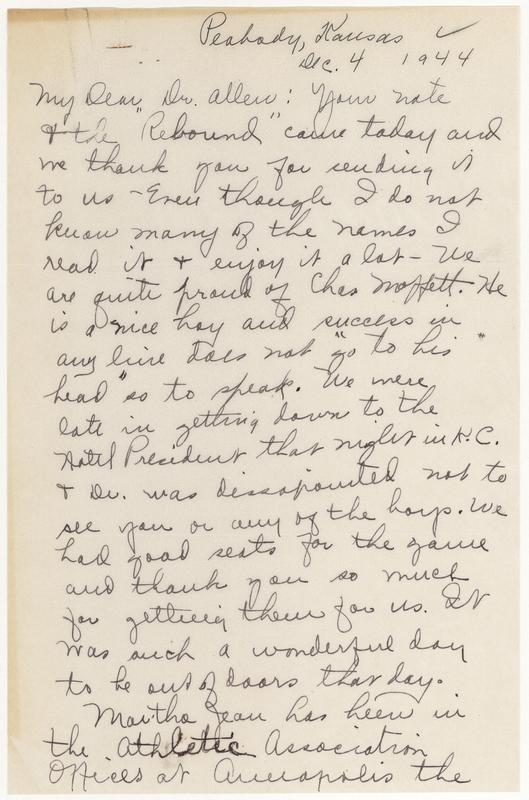 Peabody, Kansas
Dec. 4 1944
My Dear Dr. Allen: Your note
& the "Rebound" came today and
we thank you for sending it
to us – Even though I do not
know many of the names I
read it & enjoy it a lot – We
are quite proud of Chas Moffett. He
is a nice boy and success in
any line does not "go to his
head" so to speak. We were
late in getting down to the
Hotel President that night in K.C.
& Dr. was dissapointed not to
see you or any of the boys. We
had good seats for the game
and thank you so much
for getting them for us. It
was such a wonderful day
to be out of doors that day.
Martha Jean has been in
the Athletic Association
Offices at Annapolis the